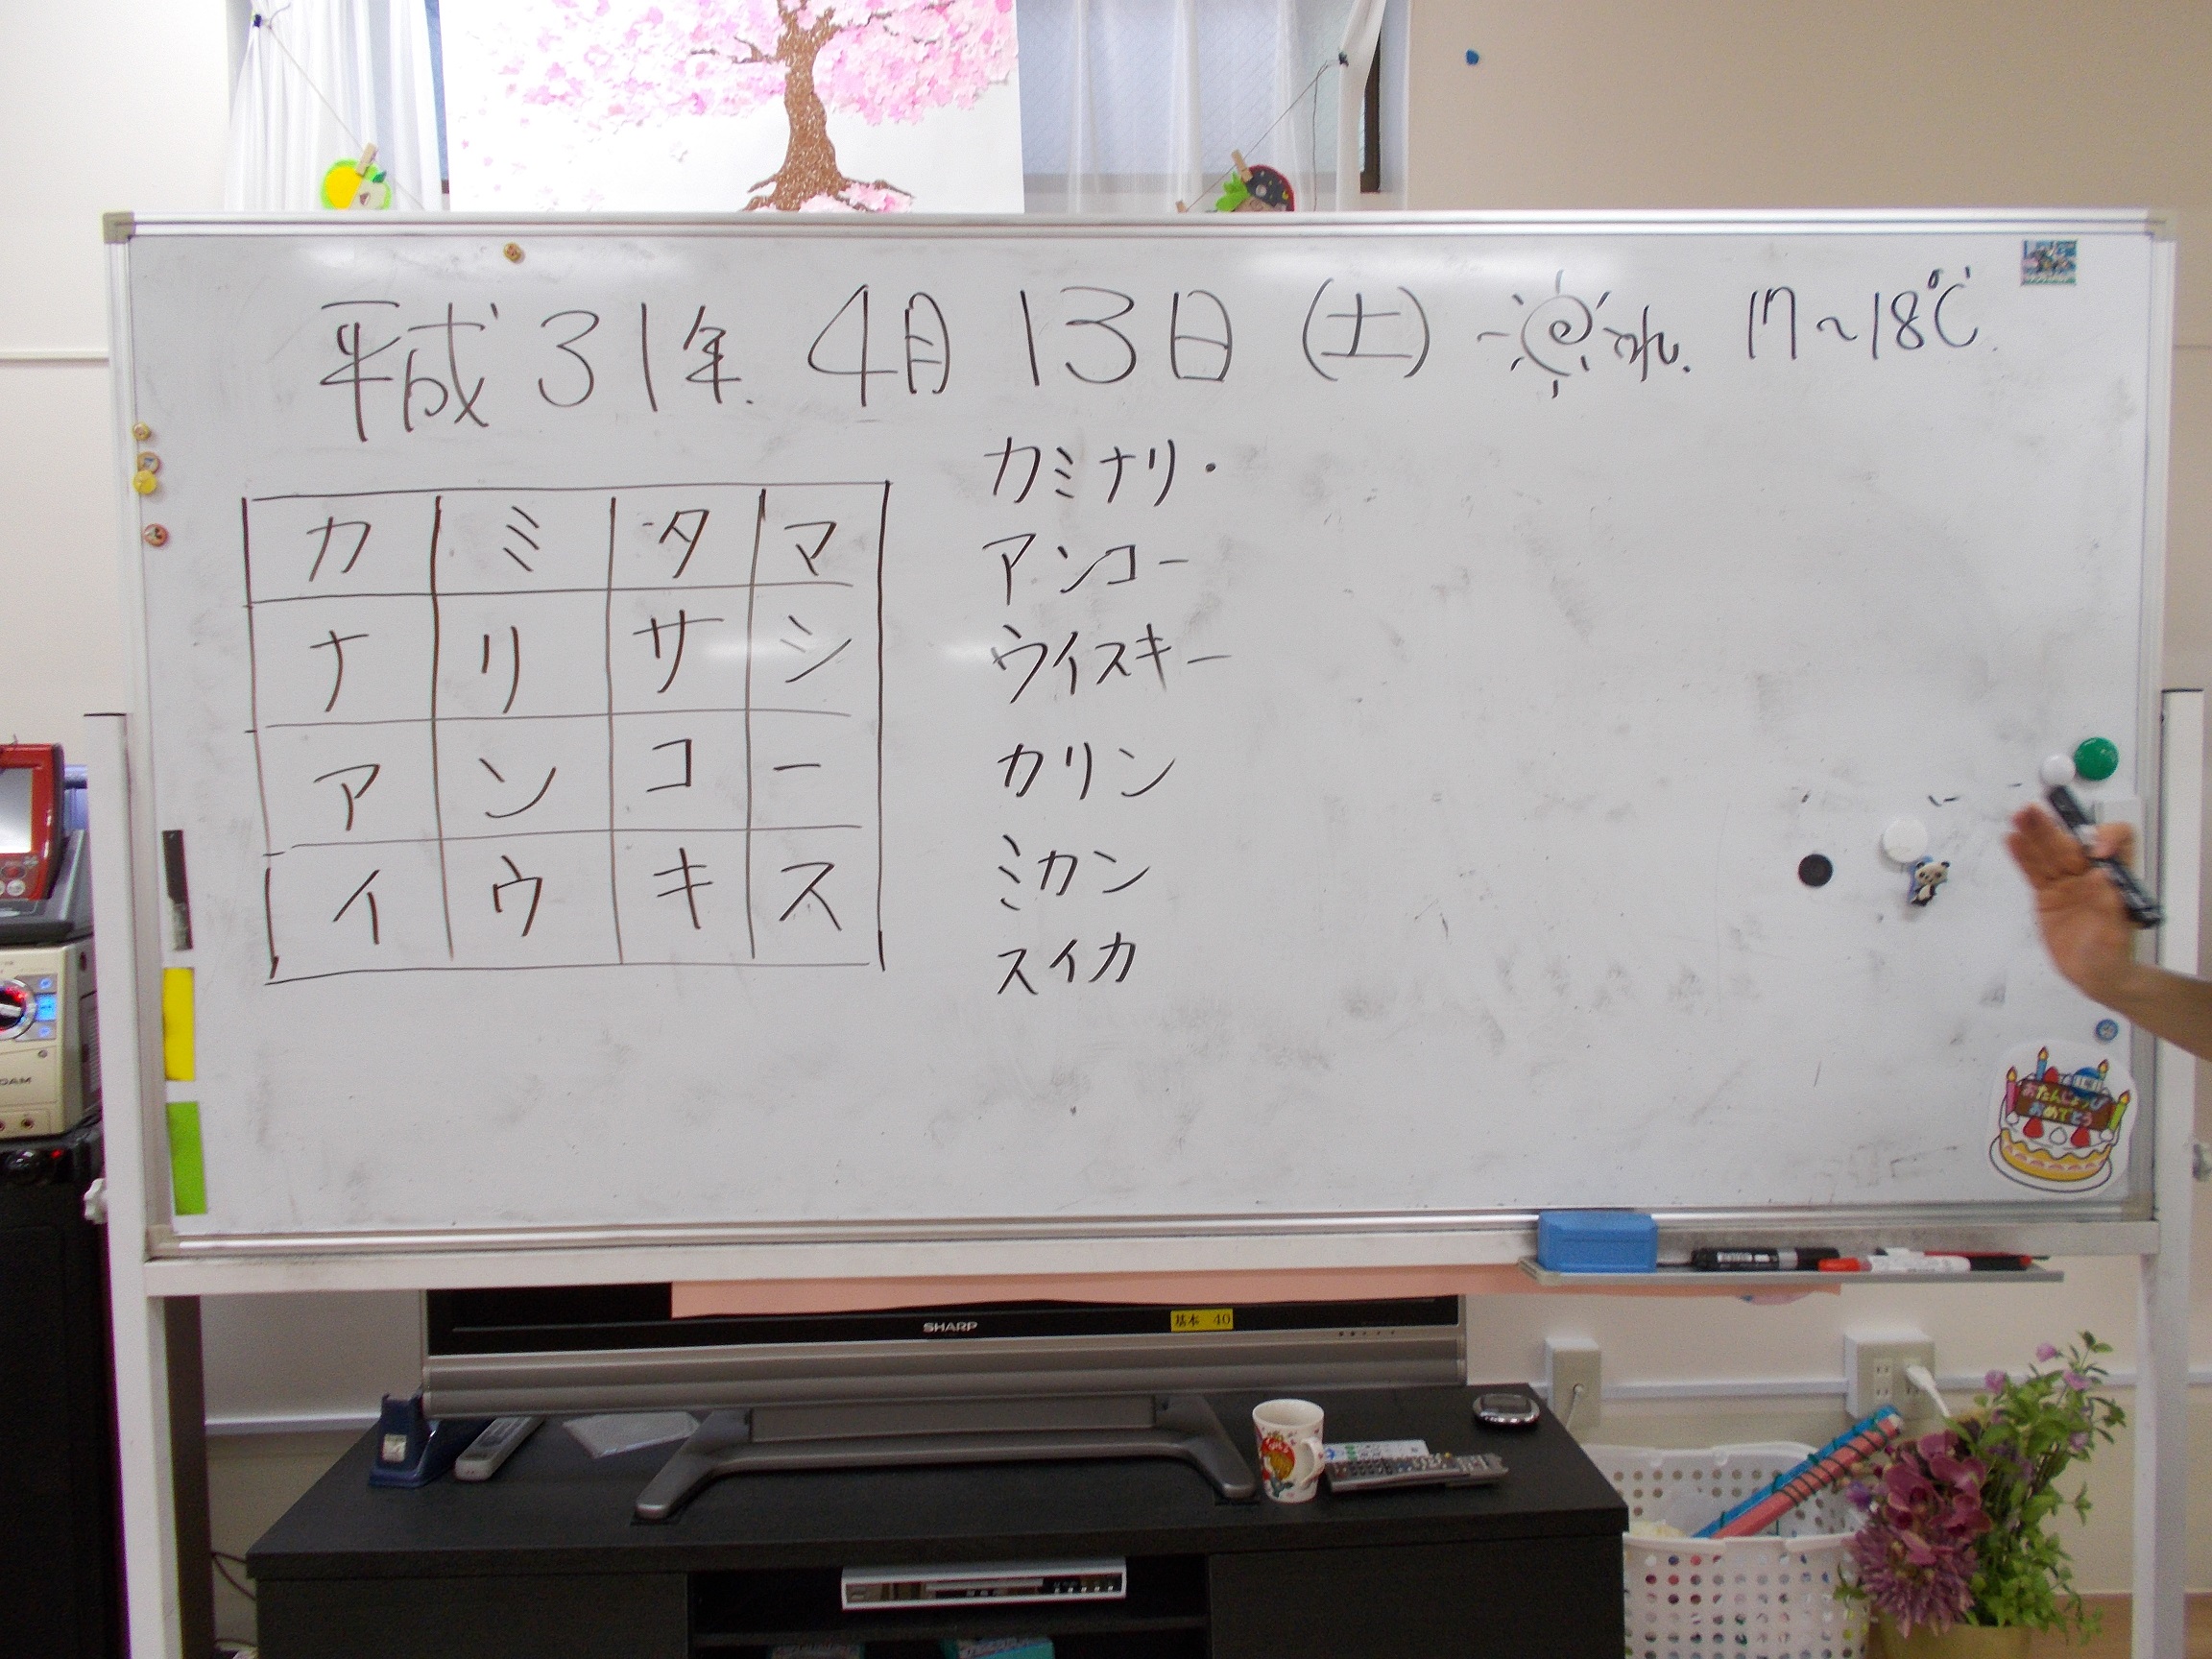 平成31年 4月 13日 (土) 晴れ. 17~18℃
カ ミ タ マ
ナ リ サ シ
ア ン コ ー
イ ウ キ ス
カミナリ・
アンコー
ウイスキー
カリン
ミカン
スイカ
おたんじょうび
おめでとう
SHARP
基本 40
DAM